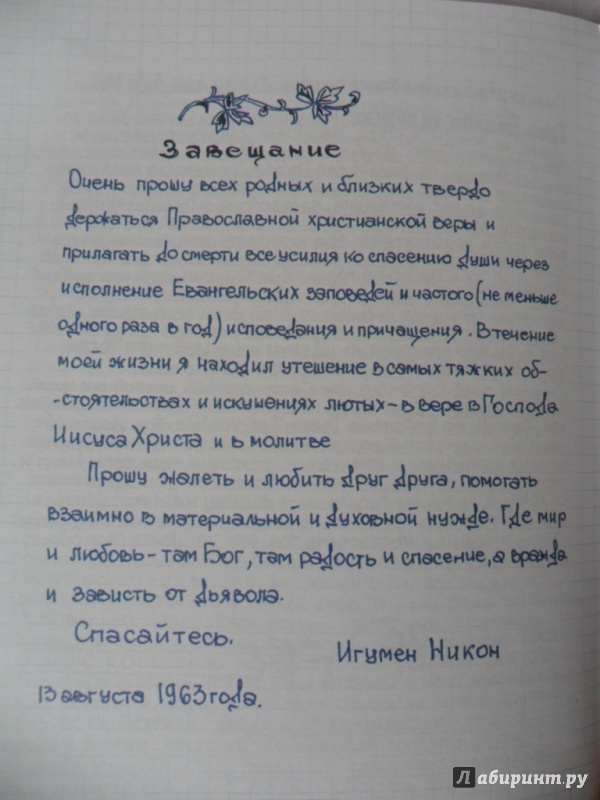 Завещание
Очень прошу всех родных и близких твердо
держаться Православной христианской веры и
прилагать до смерти все усилия ко спасению души через
исполнение Евангельских заповедей и частого (не меньше
одного раза в год) исповедания и причащения. В течение
моей жизни я находил утешение в самых тяжких об-
-стоятельствах и искушениях лютых - в вере в Господа
Иисуса Христа и в молитве
Прошу жалеть и любить друг друга, помогать
взаимно в материальной и духовной нужде. Где мир
и любовь - там Бог, там радость и спасение, а вражда
и зависть от дьявола.
Спасайтесь.
Игумен Никон
13 августа 1963 года.
Лабиринт.ру